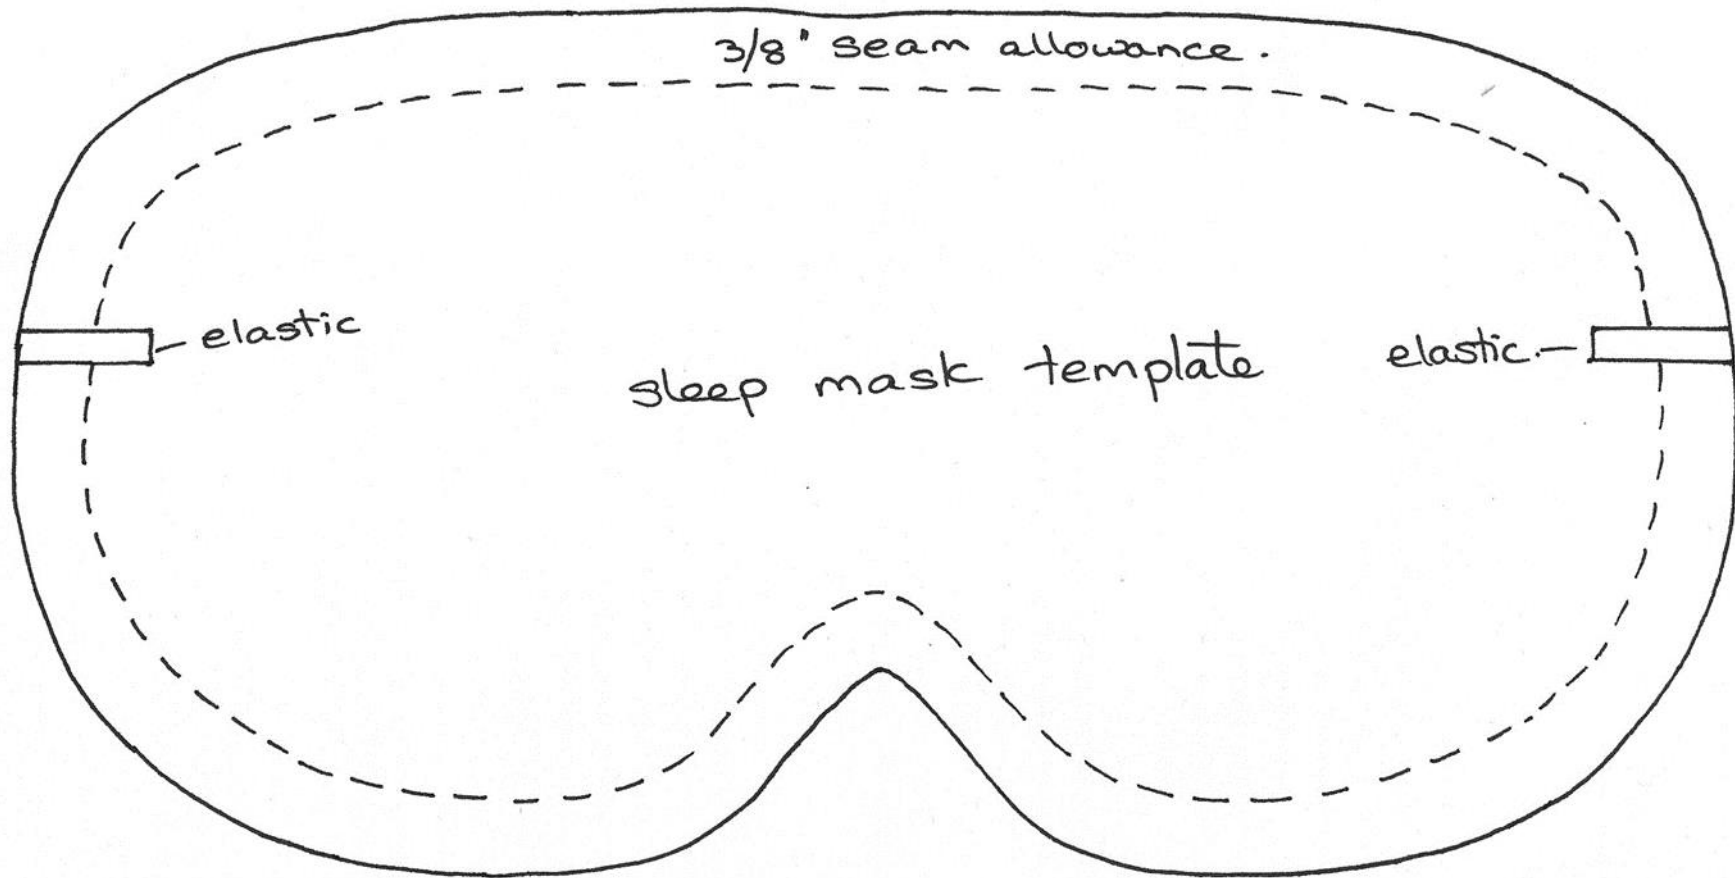 3/8" seam allowance.
elastic
sleep mask template
elastic.